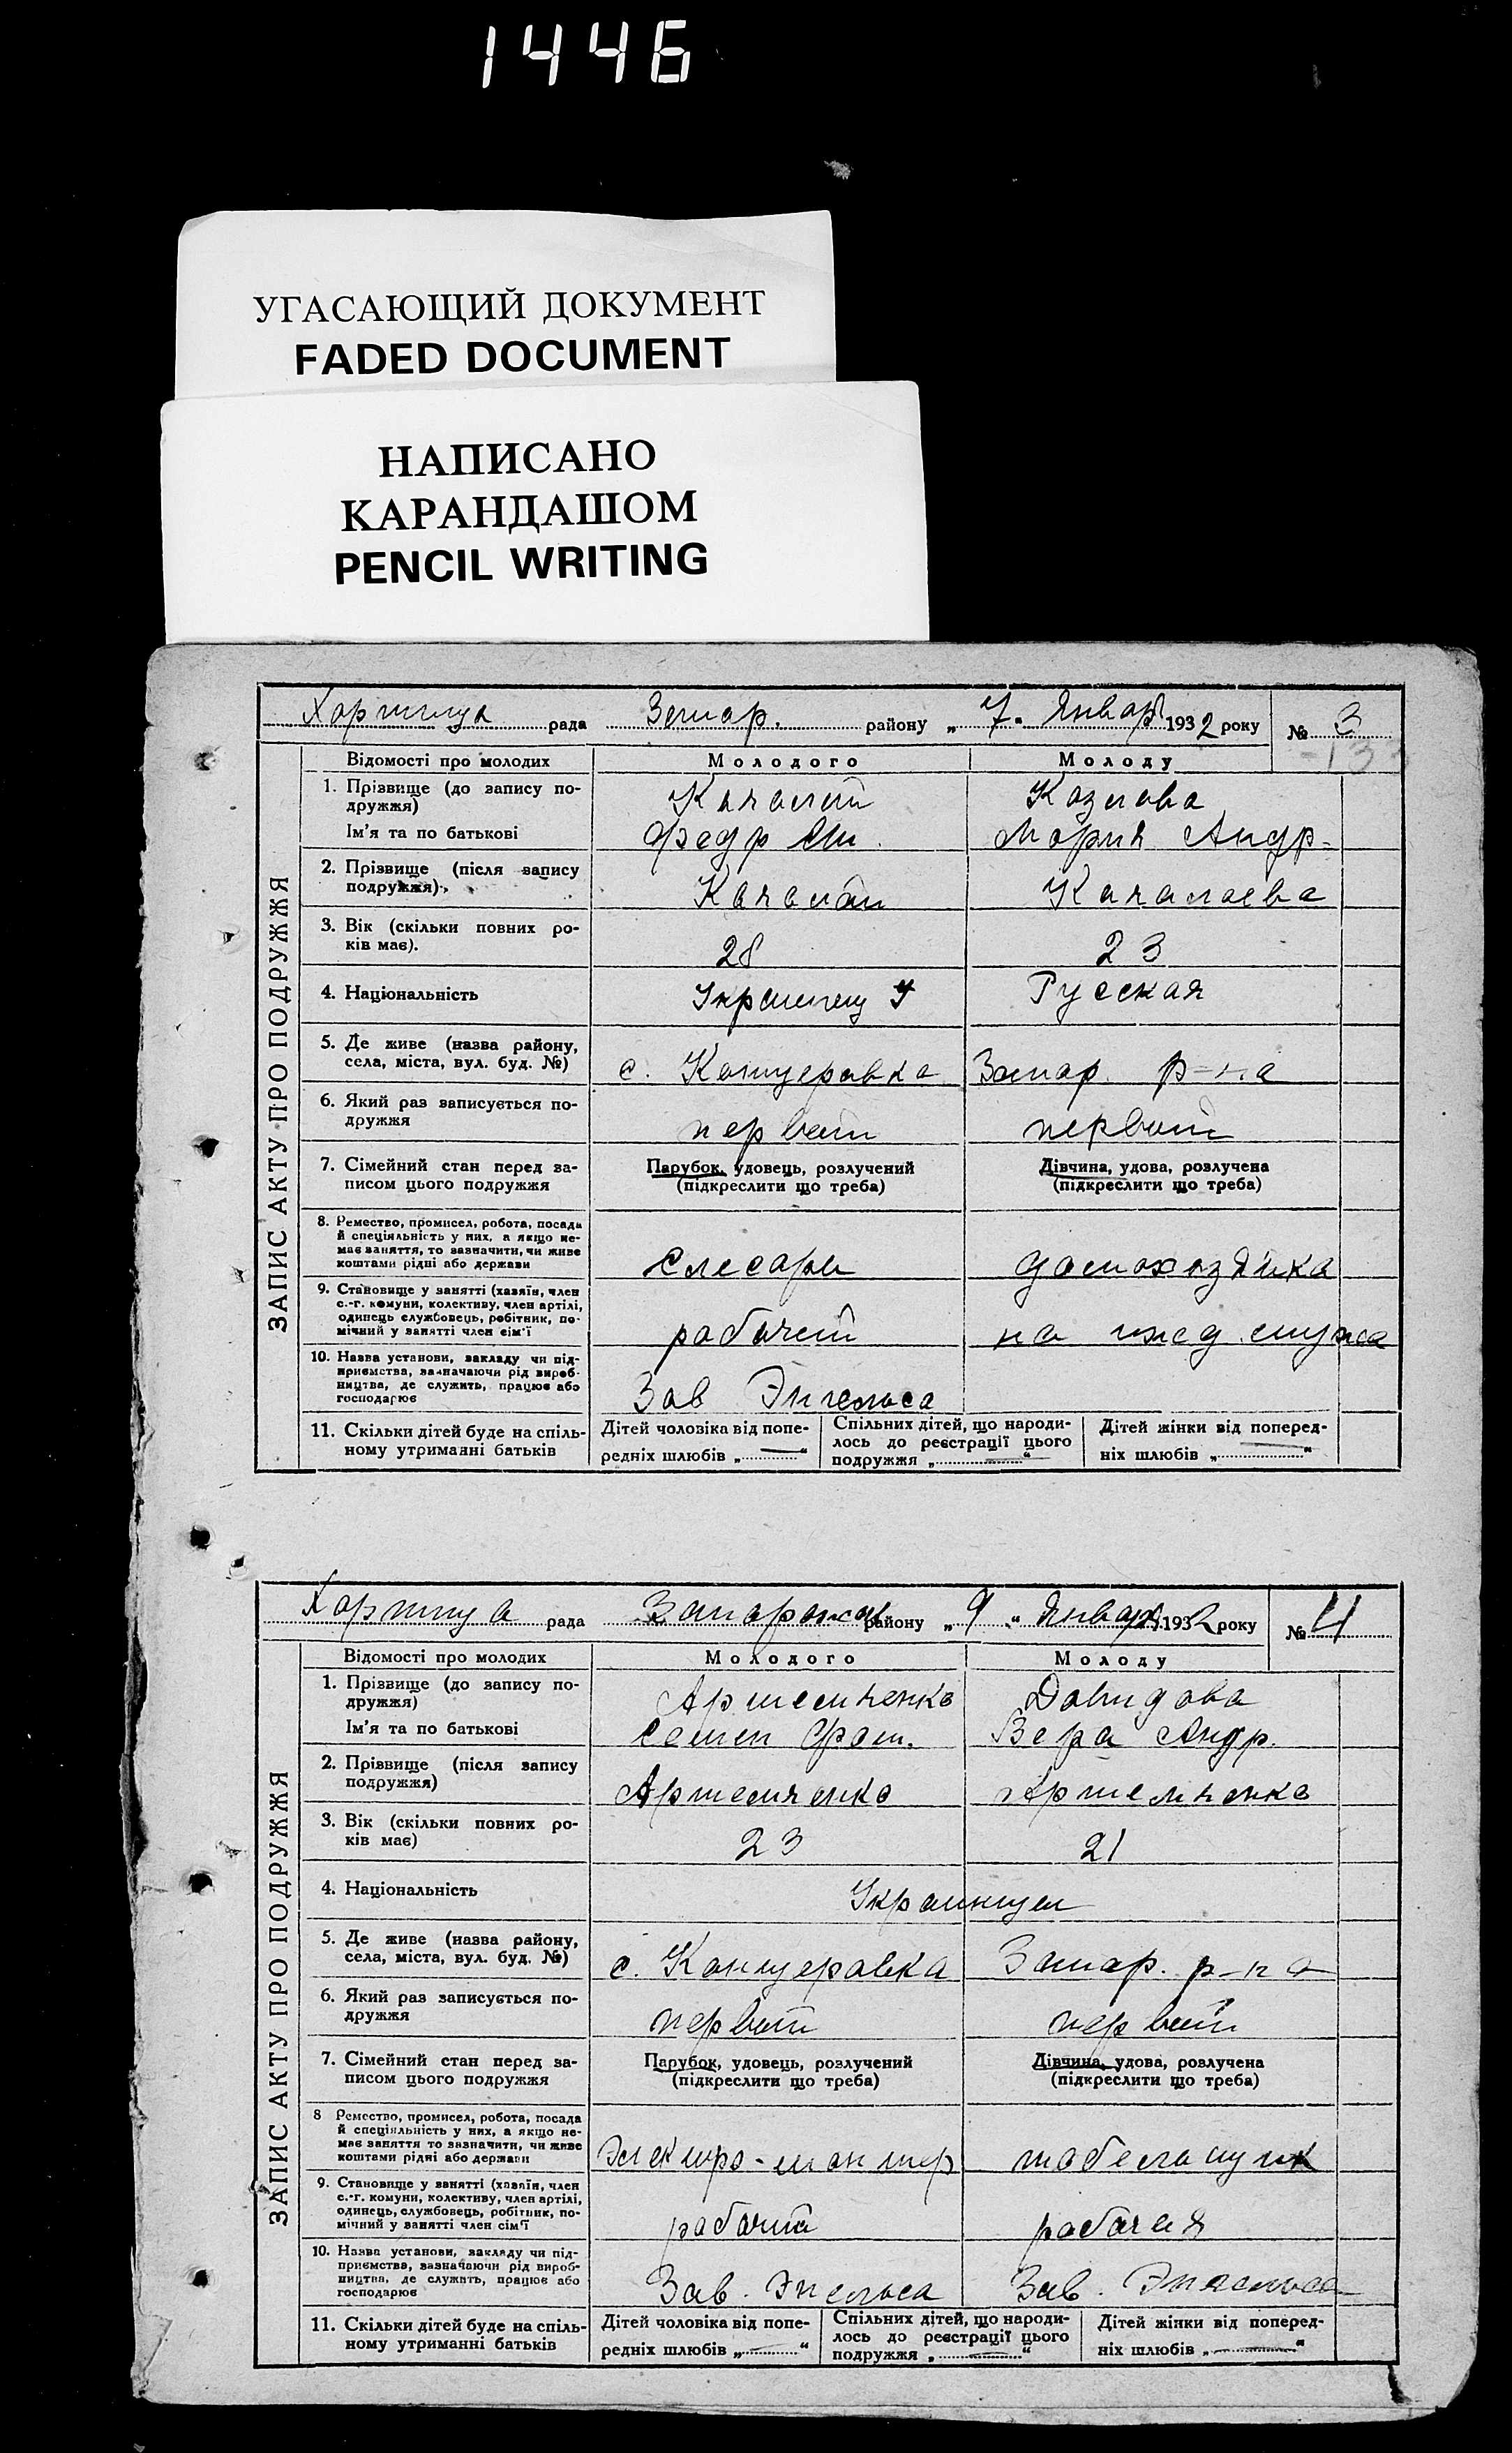 1446
УГАСАЮЩИЙ ДОКУМЕНТ
FADED DOCUMENT
НАПИСАНО
КАРАНДАШОМ
PENCIL WRITING
Хортица рада Запор. району „ 7 " Января 1932 року № 3
Відомості про молодих Молодого Молоду
ЗАПИС АКТУ ПРО ПОДРУЖЖЯ
1. Прізвище (до запису по-
дружжя) Козлова
Ім'я та по батькові Федр Мария Андр-
2. Прізвище (після запису
подружжя)
3. Вік (скільки повних ро-
ків має). 28 23
4. Національність Украинец Русская
5. Де живе (назва району,
села, міста, вул. буд. №) с. Канцеровка Запор. р-на
6. Який раз записується по-
дружжя первый первый
7. Сімейний стан перед за-
писом цього подружжя
Парубок, удовець, розлучений
(підкреслити що треба)
Дівчина, удова, розлучена
(підкреслити що треба)
8. Ремество, промисел, робота, посада
й спеціяльність у них, а якщо не-
має заняття, то зазначити, чи живе
коштами рідні або держави
слесарь домохозяйка
9. Становище у занятті (хазяїн, член
с.-г. комуни, колективу, член артілі,
одинець службовець, робітник, по-
мічний у занятті член сім'ї
рабочий на ижд. мужа
10. Назва установи, закладу чи під-
приємства, зазначаючи рід вироб-
ництва, де служить, працює або
господарює
Зав Энгельса
11. Скільки дітей буде на спіль-
ному утриманні батьків
Дітей чоловіка від попе-
редніх шлюбів „ — "
Спільних дітей, що народи-
лось до реєстрації цього
подружжя „ — "
Дітей жінки від поперед-
ніх шлюбів „ — "
Хортица рада району „ 9 " Января 1932 року № 4
Відомості про молодих Молодого Молоду
ЗАПИС АКТУ ПРО ПОДРУЖЖЯ
1. Прізвище (до запису по-
дружжя) Артемченко Давидова
Ім'я та по батькові Семен Вера Андр.
2. Прізвище (після запису
подружжя) Артемченко Артемченко
3. Вік (скільки повних ро-
ків має) 23 21
4. Національність Украинцы
5. Де живе (назва району,
села, міста, вул. буд. №) с. Канцеровка Запор. р-на
6. Який раз записується по-
дружжя первый первый
7. Сімейний стан перед за-
писом цього подружжя
Парубок, удовець, розлучений
(підкреслити що треба)
Дівчина, удова, розлучена
(підкреслити що треба)
8 Ремество, промисел, робота, посада
й спеціяльність у них, а якщо не-
має заняття то зазначити, чи живе
коштами рідні або держави
Электро-монтер табельщик
9. Становище у занятті (хазяїн, член
с.-г. комуни, колективу, член артілі,
одинець, службовець, робітник, по-
мічний у занятті член сім'ї
рабочий рабочая
10. Назва установи, закладу чи під-
приємства, зазначаючи рід вироб-
ництва, де служить, працює або
господарює
Зав. Энгельса Зав. Энгельса
11. Скільки дітей буде на спіль-
ному утриманні батьків
Дітей чоловіка від попе-
редніх шлюбів „ — "
Спільних дітей, що народи-
лось до реєстрації цього
подружжя „ — "
Дітей жінки від поперед-
ніх шлюбів „ — "